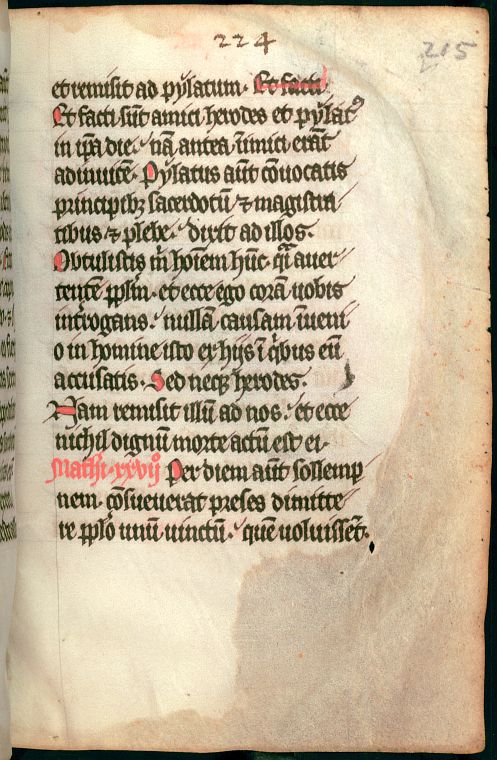 224
215
et remisit ad pylatum· Et facti
Et facti sūt amici herodes et pylat⁹
in ip̄a die· nā antea īimici erāt
adiuuicē· Pylatus aūt cōuocatis
principibꝫ sacerdotū ⁊ magistra
tibus ⁊ plebe· dixit ad illos·
Obtulistis m̄ hoīem hūc· q̄i auer
tentē pplm̄· et ecce ego corā uobis
int̄rogans· nullā causam īueni
o in homine isto ex hijs ī qͥbus eū
accusatis· Sed necꝫ herodes·
Nam remisit illū ad nos· et ecce
nichil dignū morte actū est ei·
Mathi· xxvijº Per diem aūt sollemp
nem· cōsueuerat preses dimitte
re pplo unū uinctū· quē uoluissēt·